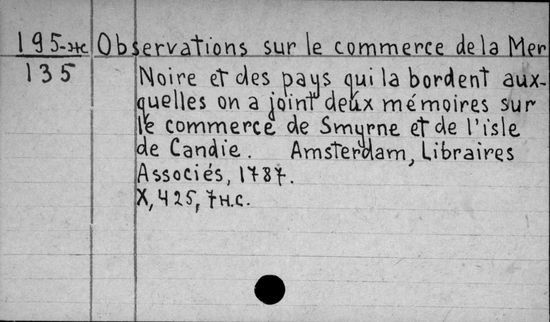 195-ЭК Observations sur le commerce de la Mer
135 Noire et des pays qui la bordent aux-
quelles on a joint deux mémoires sur
le commerce de Smyrne et de l'isle
de Candie. Amsterdam, Libraires
Associés, 1787.
X, 425, 7 н.с.